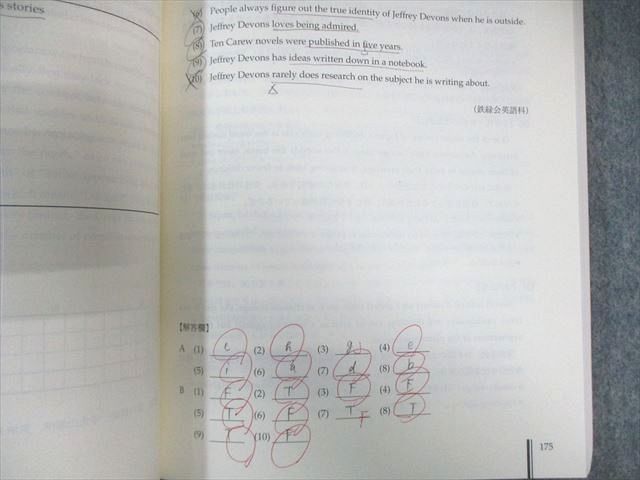 s stories
(6) People always figure out the true identity of Jeffrey Devons when he is outside.
(7) Jeffrey Devons loves being admired.
(8) Ten Carew novels were published in five years.
(9) Jeffrey Devons has ideas written down in a notebook.
(10) Jeffrey Devons rarely does research on the subject he is writing about.
(鉄緑会英語科)
【解答欄】
A (1) (2) h (3) g (4) e
(5) i (6) a (7) d (8) b
B (1) F (2) T (3) F (4) F
(5) T (6) F (7) T F (8) T
(9) T (10) F
175